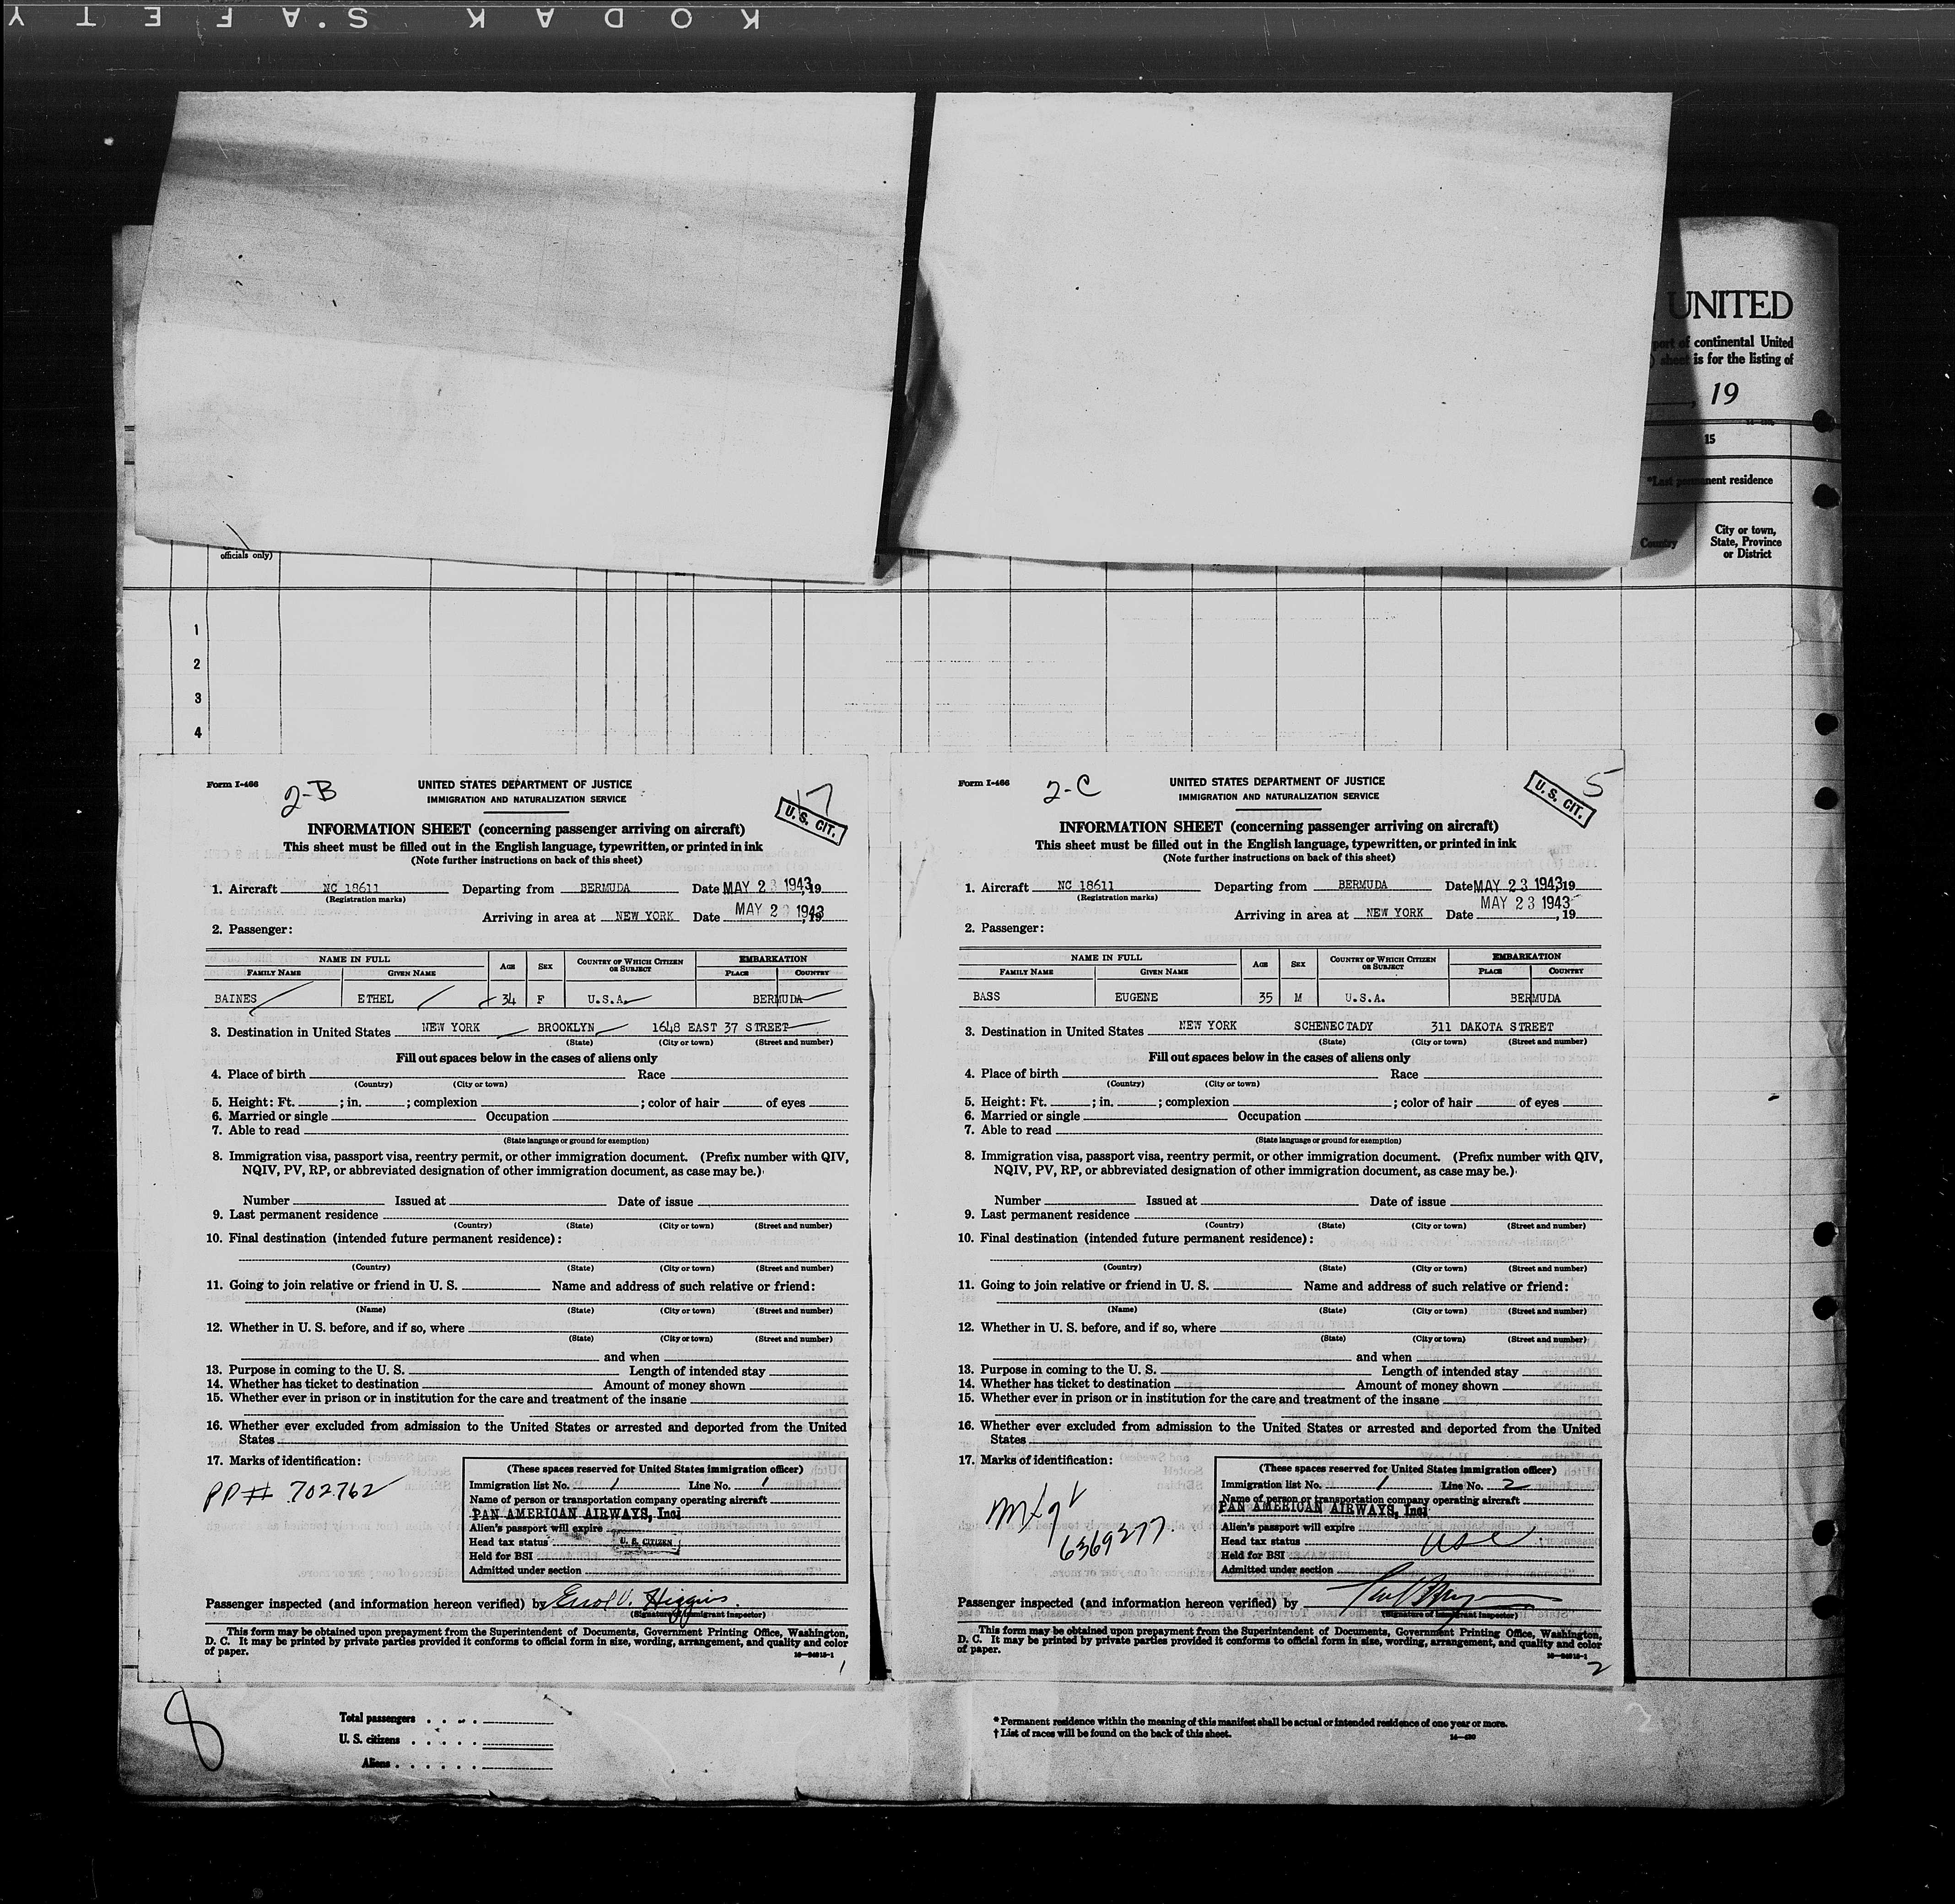 KODAK SAFETY
UNITED
port of continental United
) sheet is for the listing of
, 19
15
*Last permanent residence
officials only)
Country
City or town,
State, Province
or District
1
2
3
4
Form I-466
2-B
UNITED STATES DEPARTMENT OF JUSTICE
IMMIGRATION AND NATURALIZATION SERVICE
17
U. S. CIT.
INFORMATION SHEET (concerning passenger arriving on aircraft)
This sheet must be filled out in the English language, typewritten, or printed in ink
(Note further instructions on back of this sheet)
1. Aircraft NC 18611 Departing from BERMUDA Date MAY 23 1943, 19
(Registration marks)
Arriving in area at NEW YORK Date MAY 23 1943, 19
2. Passenger:
NAME IN FULL AGE SEX COUNTRY OF WHICH CITIZEN OR SUBJECT EMBARKATION
FAMILY NAME GIVEN NAME PLACE COUNTRY
BAINES ETHEL 34 F U.S.A. BERMUDA
3. Destination in United States NEW YORK BROOKLYN 1648 EAST 37 STREET
(State) (City or town) (Street and number)
Fill out spaces below in the cases of aliens only
4. Place of birth Race
(Country) (City or town)
5. Height: Ft. ; in. ; complexion ; color of hair of eyes
6. Married or single Occupation
7. Able to read
(State language or ground for exemption)
8. Immigration visa, passport visa, reentry permit, or other immigration document. (Prefix number with QIV,
NQIV, PV, RP, or abbreviated designation of other immigration document, as case may be.)
Number Issued at Date of issue
9. Last permanent residence
(Country) (State) (City or town) (Street and number)
10. Final destination (intended future permanent residence):
(Country) (State) (City or town) (Street and number)
11. Going to join relative or friend in U. S. Name and address of such relative or friend:
(Name) (State) (City or town) (Street and number)
12. Whether in U. S. before, and if so, where
(State) (City or town) (Street and number)
and when
13. Purpose in coming to the U. S. Length of intended stay
14. Whether has ticket to destination Amount of money shown
15. Whether ever in prison or in institution for the care and treatment of the insane
16. Whether ever excluded from admission to the United States or arrested and deported from the United
States
17. Marks of identification:
PP# 702762
(These spaces reserved for United States immigration officer)
Immigration list No. 1 Line No. 1
Name of person or transportation company operating aircraft
PAN AMERICAN AIRWAYS, Inc.
Alien's passport will expire
Head tax status U. S. CITIZEN
Held for BSI
Admitted under section
Passenger inspected (and information hereon verified) by Errol V. Higgins
(Signature of immigrant inspector)
This form may be obtained upon prepayment from the Superintendent of Documents, Government Printing Office, Washington,
D. C. It may be printed by private parties provided it conforms to official form in size, wording, arrangement, and quality and color
of paper.
1
Form I-466
2-C
UNITED STATES DEPARTMENT OF JUSTICE
IMMIGRATION AND NATURALIZATION SERVICE
5
U. S. CIT.
INFORMATION SHEET (concerning passenger arriving on aircraft)
This sheet must be filled out in the English language, typewritten, or printed in ink
(Note further instructions on back of this sheet)
1. Aircraft NC 18611 Departing from BERMUDA Date MAY 23 1943, 19
(Registration marks)
Arriving in area at NEW YORK Date MAY 23 1943, 19
2. Passenger:
NAME IN FULL AGE SEX COUNTRY OF WHICH CITIZEN OR SUBJECT EMBARKATION
FAMILY NAME GIVEN NAME PLACE COUNTRY
BASS EUGENE 35 M U.S.A. BERMUDA
3. Destination in United States NEW YORK SCHENECTADY 311 DAKOTA STREET
(State) (City or town) (Street and number)
Fill out spaces below in the cases of aliens only
4. Place of birth Race
(Country) (City or town)
5. Height: Ft. ; in. ; complexion ; color of hair of eyes
6. Married or single Occupation
7. Able to read
(State language or ground for exemption)
8. Immigration visa, passport visa, reentry permit, or other immigration document. (Prefix number with QIV,
NQIV, PV, RP, or abbreviated designation of other immigration document, as case may be.)
Number Issued at Date of issue
9. Last permanent residence
(Country) (State) (City or town) (Street and number)
10. Final destination (intended future permanent residence):
(Country) (State) (City or town) (Street and number)
11. Going to join relative or friend in U. S. Name and address of such relative or friend:
(Name) (State) (City or town) (Street and number)
12. Whether in U. S. before, and if so, where
(State) (City or town) (Street and number)
and when
13. Purpose in coming to the U. S. Length of intended stay
14. Whether has ticket to destination Amount of money shown
15. Whether ever in prison or in institution for the care and treatment of the insane
16. Whether ever excluded from admission to the United States or arrested and deported from the United
States
17. Marks of identification:
6369277
(These spaces reserved for United States immigration officer)
Immigration list No. 1 Line No. 2
Name of person or transportation company operating aircraft
PAN AMERICAN AIRWAYS, Inc.
Alien's passport will expire
Head tax status USC
Held for BSI
Admitted under section
Passenger inspected (and information hereon verified) by
(Signature of immigrant inspector)
This form may be obtained upon prepayment from the Superintendent of Documents, Government Printing Office, Washington,
D. C. It may be printed by private parties provided it conforms to official form in size, wording, arrangement, and quality and color
of paper.
2
8
Total passengers
U. S. citizens
Aliens
* Permanent residence within the meaning of this manifest shall be actual or intended residence of one year or more.
† List of races will be found on the back of this sheet.